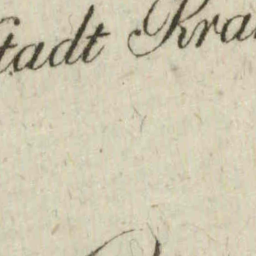 stadt Kra